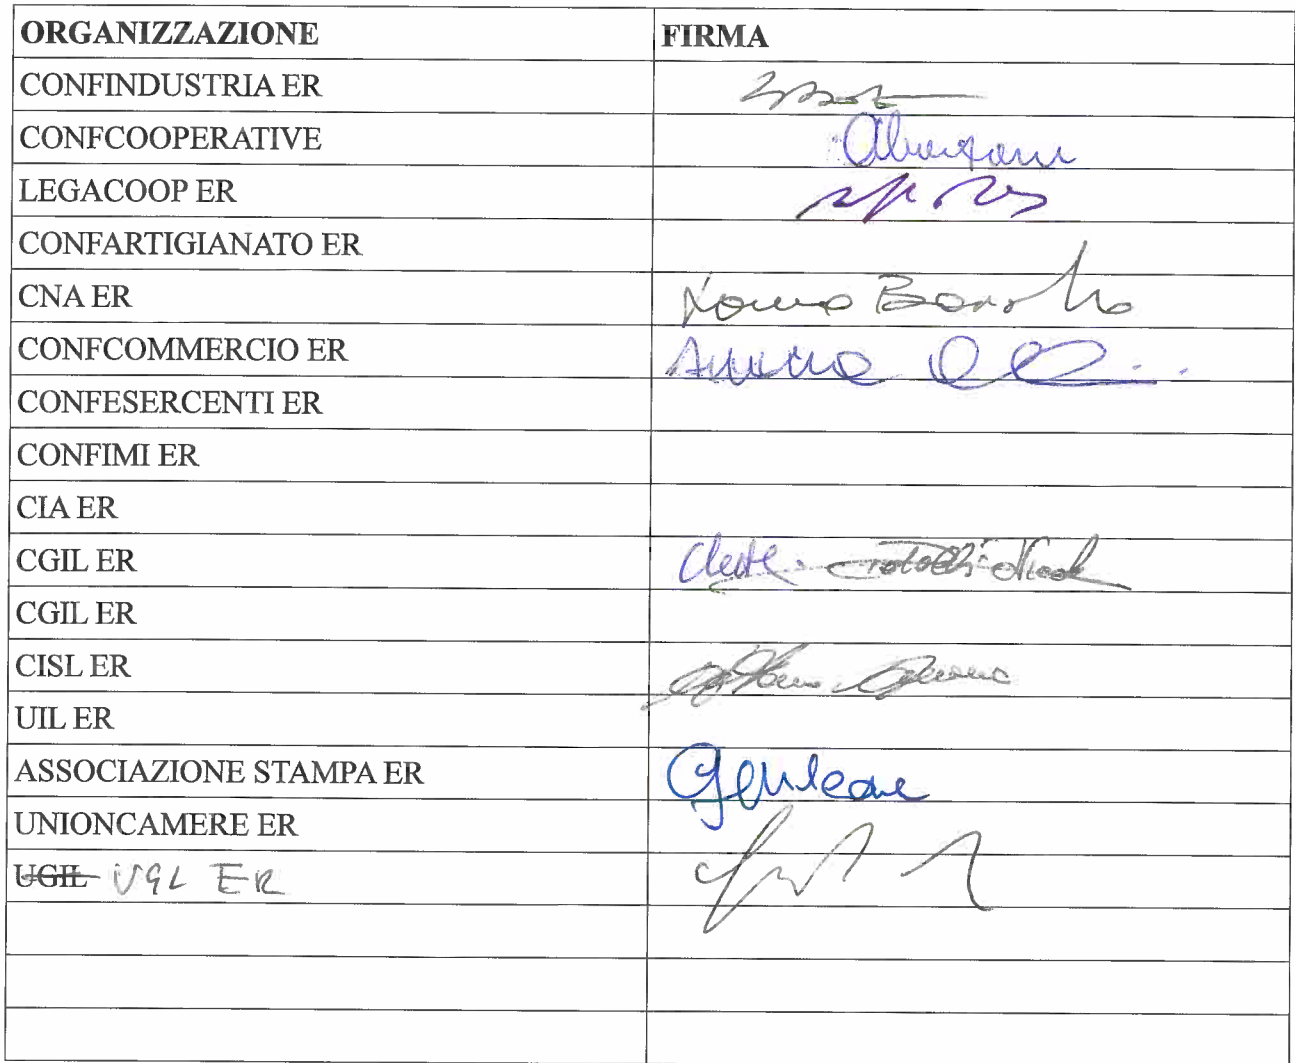 ORGANIZZAZIONE FIRMA
CONFINDUSTRIA ER
CONFCOOPERATIVE
LEGACOOP ER
CONFARTIGIANATO ER
CNA ER
CONFCOMMERCIO ER
CONFESERCENTI ER
CONFIMI ER
CIA ER
CGIL ER
CGIL ER
CISL ER
UIL ER
ASSOCIAZIONE STAMPA ER
UNIONCAMERE ER
UGIL UGL ER